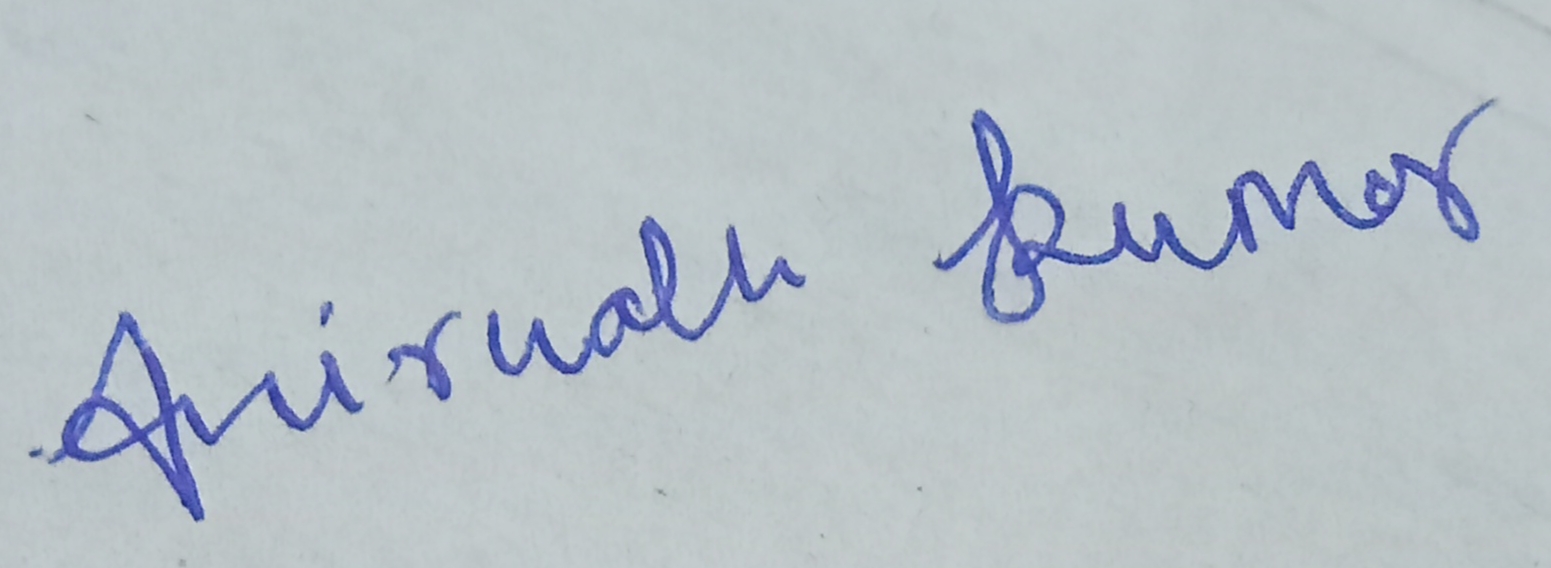 Anirudh Kumar